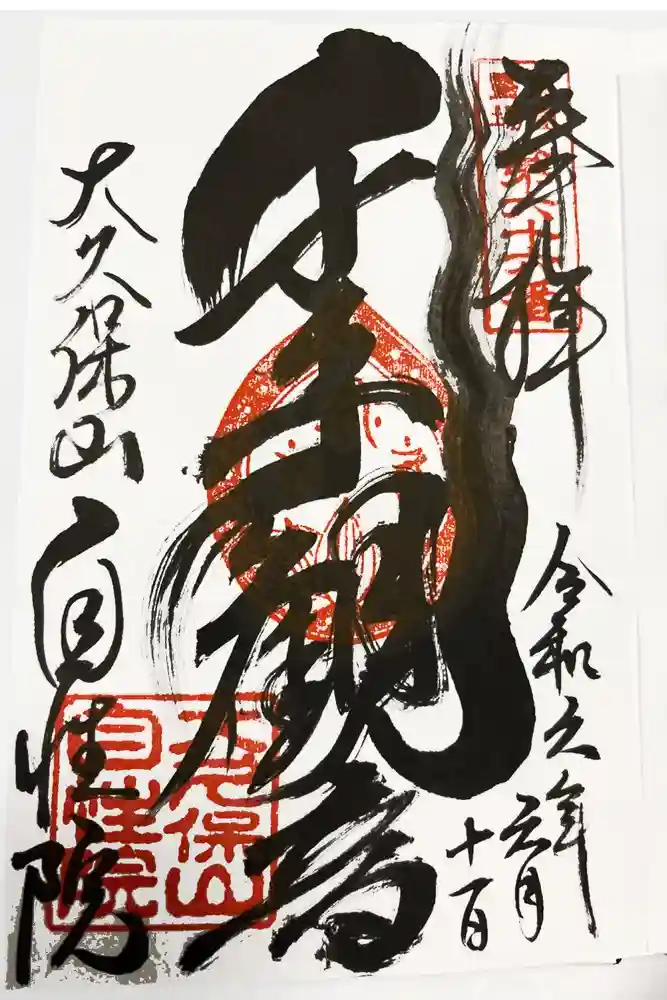 奉拝
令和
年
月
十一日
千手観音
大久保山
自性院
大久保山
自性院